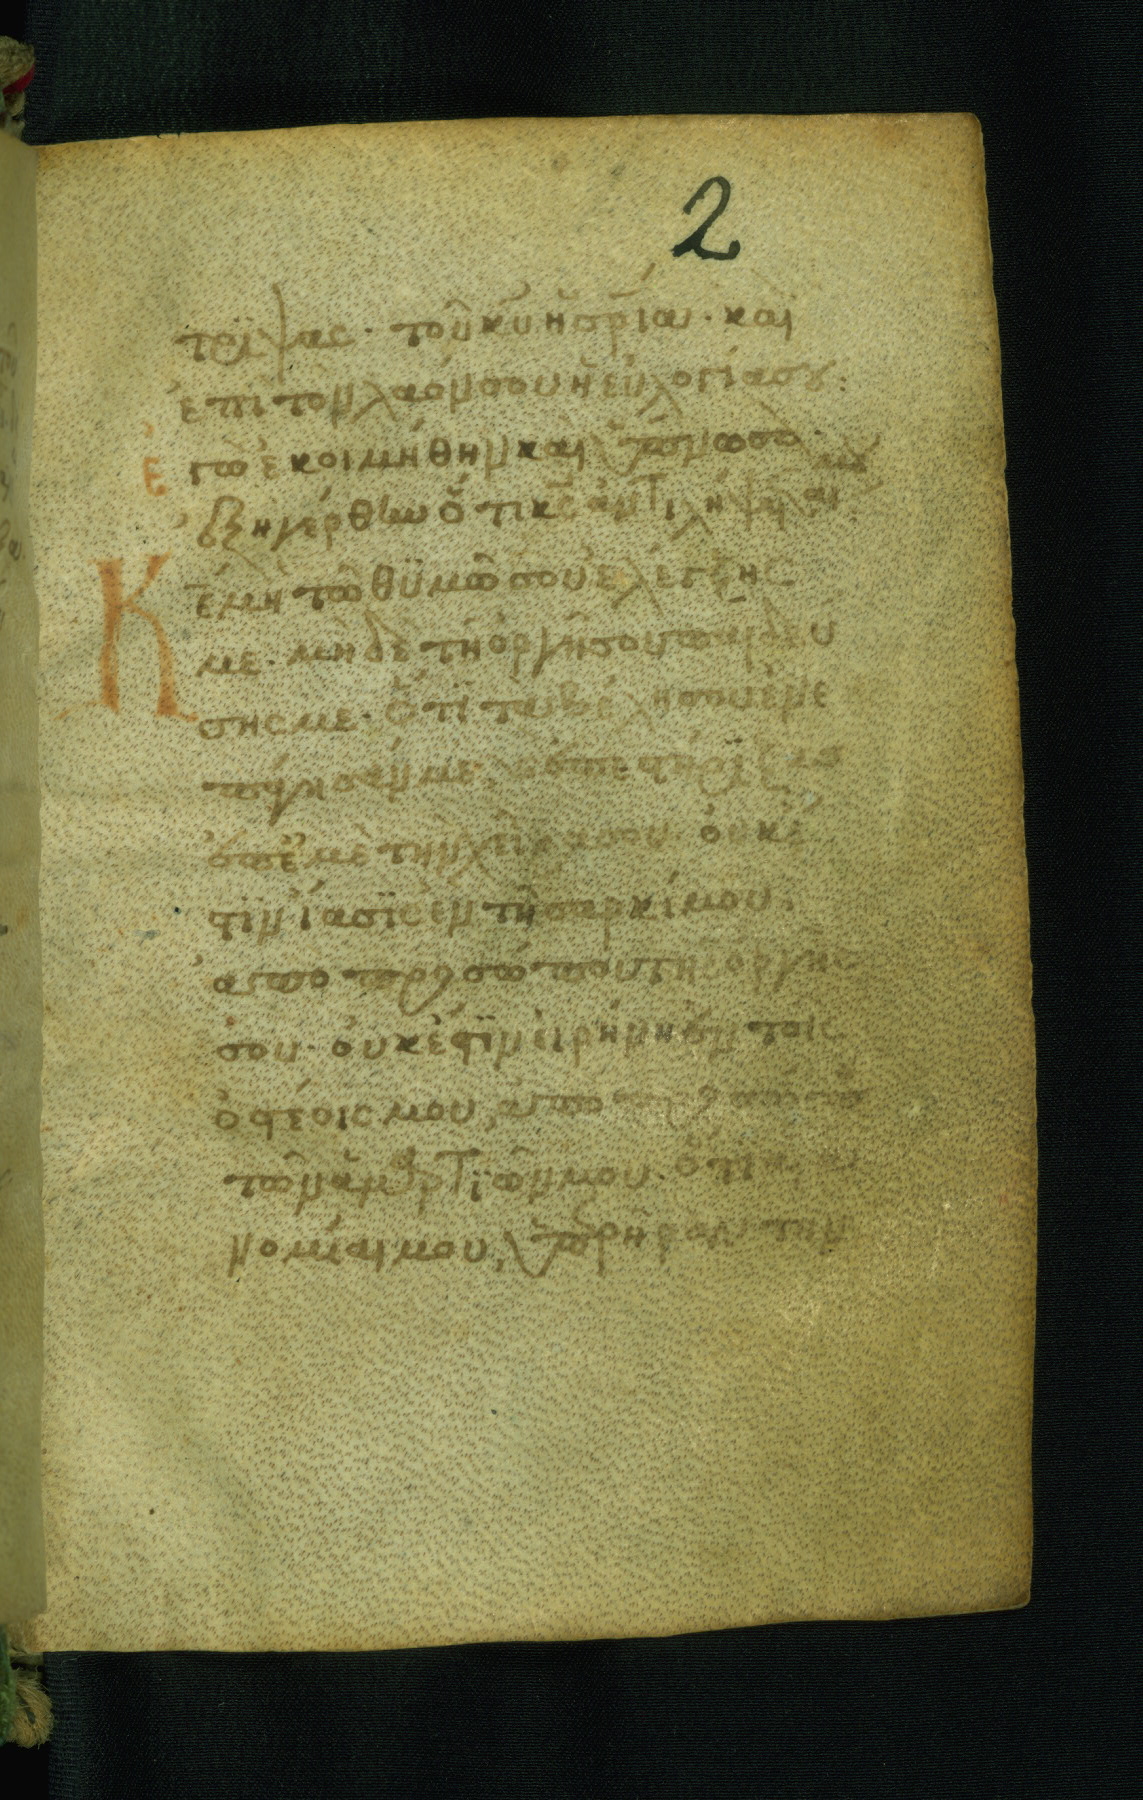 2
τρϊψας· τοῦ κῦ ἡ σρΐα· καὶ
ἐπὶ τὸν λαόν σου ἡ εὐλογία σου:
Ἐγὼ ἐκοιμήθην καὶ ὕπνωσα·
ἐξηγέρθην ὅτι κς ἀντιλήψεται
Κε μὴ τῶ θϋμῶ σου ἐλέγξης
με· μηδὲ τῆ ὀργῆ σου παιδεύ
σης με· ὅτϊ τὰ βέλη σου ἐνε
πάγησάν με· καὶ ἐπεστήρϊξας
ἐπ ἐμὲ τὴν χεῖρα σου· οὐκ ἔ
στϊν ἴασϊς ἐν τῆ σαρκί μου·
ἀπὸ προσώπου τῆς ὀργῆς
σου· οὐκ ἔστϊν εἰρήνη ἐν τοῖς
ὀστέοις μου, ἀπὸ προσώπου
τῶν ἁμαρτϊῶν μου· ὅτι αἱ ἀ
νομίαι μου, ὑπερῆραν τὴν